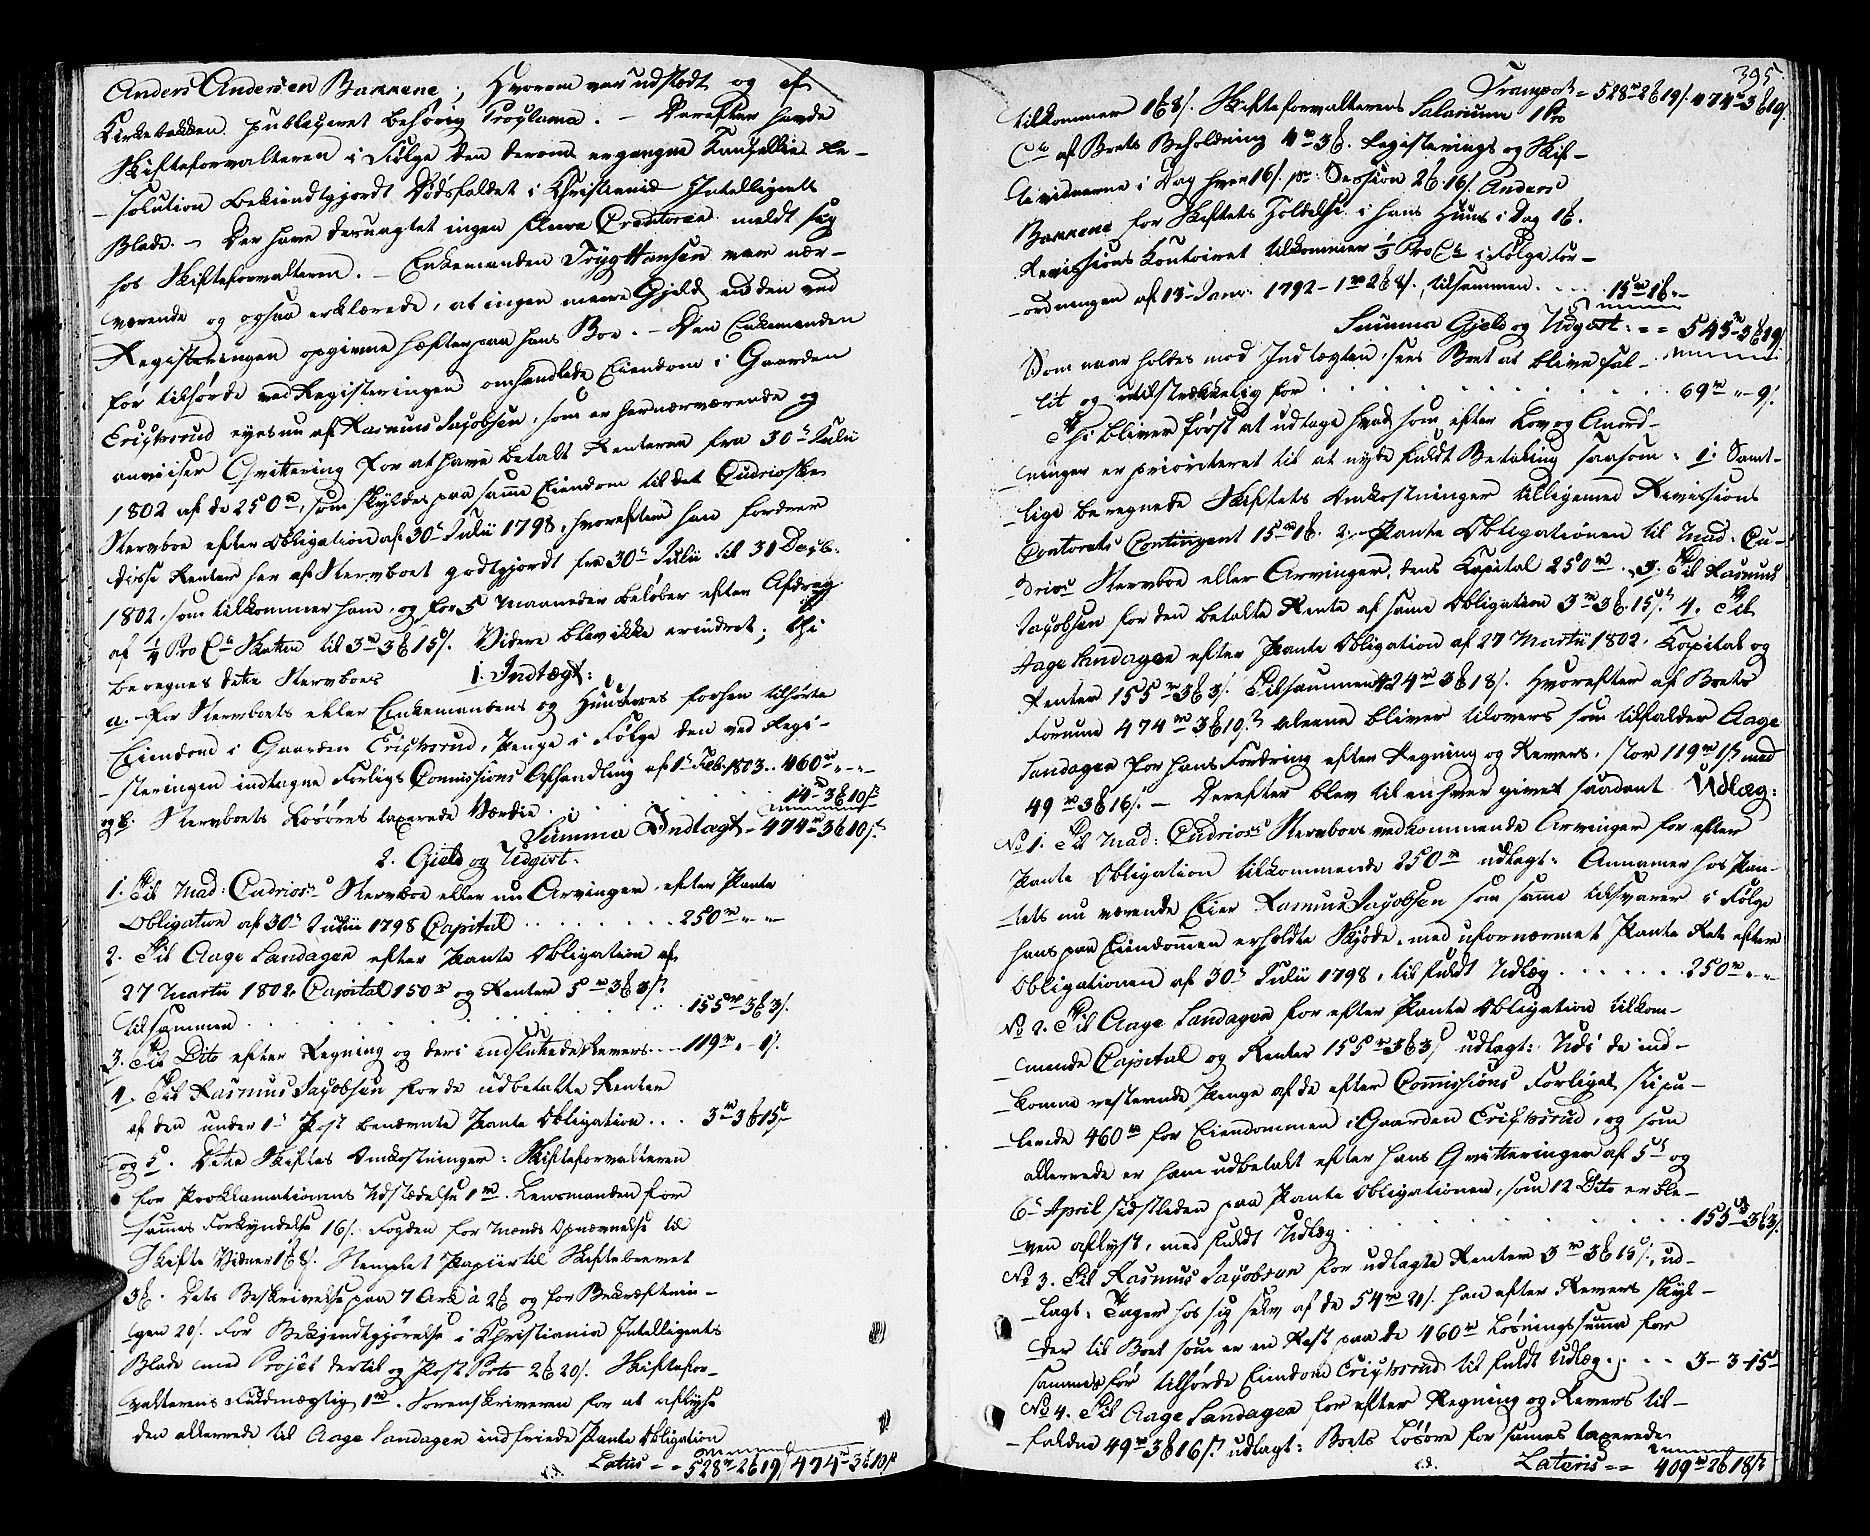 Anders Andersen Bakkene, hvorom var udstædt og af
Kirkebakken publiceret behørig Proclama. – Derefter havde
Skifteforvalteren i Følge den derom ergangne Cancellie Re-
solution bekiendtgjordt Dødsfaldet i Christiania Intelligents
Blade. – Der have desuagtet ingen fleere Creditorer meldt sig
hos Skifteforvalteren. – Enkemanden Tryg Hansen var nær-
værende og ogsaa erklærede, at ingen meere Gjeld end den ved
Registeringen opgivne hæfter paa hans Boe. – Den Enkemanden
før tilhørde ved Registeringen omhandlede Eiendom i Gaarden
Erichsrud eyes nu af Rasmus Jacobsen, som er hernærværende og
anviiser Qvittering for at have betalt Renterne fra 30te Julii
1802 af de 250 rd, som skyldes paa samme Eiendom til det Cudrioske
Stervboe efter Obligation af 30te Julii 1798, hvorefter han fordrer
disse Renter her af Stervboet godtgjordt fra 30te Julii til 31 Decbr.
1802, som tilkommer ham, og for 5 Maaneder beløber efter Afdrag
af ¼ Pro Ct Skatten til 3 rd 3 ß 15 s. Videre blev ikke erindret; thi
beregnes dette Stervboes 1. Indtægt:
a. For Stervboets eller Enkemandens og Hustroes forhen tilhørte
Eiendom i Gaarden Erichsrud, Penge i Følge den ved Regi-
steringen indtagne Forligs Commissions Afhandling af 1te Febr. 1803 .. 460 rd „ „
og b. Stervboets Løsøres taxerede Værdie . . . . 14 – 3 ß 10 s
Summa Indtægt – 474 rd 3 ß 10 s
2. Gield og Udgivt.
1. Til Mad: Cudrios Stervboe eller nu Arvinger efter Pante
Obligation af 30te Julii 1798 Capital . . . . . . 250 rd „ „
2. Til Aage Sandagen efter Pante Obligation af
27 Martii 1802, Capital 150 rd og Renter 5 rd 3 ß 3 s
tilsammen . . . . . . . . 155 rd 3 ß 3 s.
3. Til Dito efter Regning og deri indsluttede Revers . . . 119 rd „ 1 s.
4. Til Rasmus Jacobsen for de udbetalte Renter
af den under 1te Post benævnte Pante Obligation . . . 3 rd 3 ß 15 s
og 5. Dette Skiftes Omkostninger: Skifteforvalteren
for Proklamationens Udstædelse 1 rd. Lensmanden for
sammes Forkyndelse 16 s. Fogden for Mænds Opnævnelse til
Skifte Vidner 1 ß 8 s. Stemplet Papiir til Skiftebrevet
3 ß. Dets Beskrivelse paa 7 Ark à 2 ß og for Bekræftnin-
gen 20 s. For Bekjendtgjørelse i Christiania Intelligents
Blade med Projet dertil og Post Porto 2 ß 20 s. Skiftefor-
valterens Fuldmægtig 1 rd. Sorenskriveren for at aflyse
den allerrede til Aage Sandagen indfriede Pante Obligation
Latus – – 528 rd 2 ß 19 s 474 rd 3 ß 10 s
395
Transport = 528 rd 2 ß 19 s. 474 rd 3 ß 10 s
tilkommer 1 ß 8 s. Skifteforvalterens Salarium 1 Pro
Ct af Boets Beholdning 4 rd 3 ß. Registerings og Skif-
tevidnerne i Dag hver 16 s. pr. Session 2 ß 16 s. Anders
Bakkene for Skiftets Holdelse i hans Huus i Dag 1 ß.
Revissions Contoiret tilkommer ⅓ Pro Ct i Følge For-
ordningen af 13 Janv. 1792 – 1 rd 2 ß 8 s, tilsammen . . . . 15 rd 1 ß „
Summa Gield og Udgivt: = = 543 – 3 ß 19 s
Som naar holdes mod Indtægten, sees Boet at blive fal-
lit og utilstrækkelig for . . . . . . . . 69 rd „ 9 s.
Thi bliver først at udtage hvad som efter Lov og Anord-
ninger er prioriteret til at nyde fuldt Betaling saasom: 1. Samt-
lige beregnede Skiftets Omkostninger tilligemed Revissions
Contorets Contingent 15 rd 1 ß. 2. Pante Obligationen til Mad: Cu-
drios Stervboe eller Arvinger, dens Capital 250 rd. 3. Til Rasmus
Jacobsen for den betalte Rente af samme Obligation 3 rd 3 ß 15 s. 4. Til
Aage Sandagen efter Pante Obligation af 27 Martii 1802, Capital og
Renter 155 rd 3 ß 3 s. Tilsammen 424 rd 3 ß 18 s. Hvorefter af Boets
Formue 474 rd 3 ß 10 s aleene bliver tilovers som tilfalder Aage
Sandagen for hans Fordring efter Regning og Revers, stor 119 rd 1 s med
49 rd 3 ß 16 s. – Derefter blev til enhver givet saadant Udlæg:
No 1. Til Mad: Cudrios Stervboes vedkommende Arvinger for efter
Pante Obligation tilkommende 250 rd udlagt: Annamer hos Pan-
tets nu værende Eier Rasmus Jacobsen som samme tilsvarer i Følge
hans paa Eiendommen erholdte Skjøde, med ufornærmet Pante Ret efter
Obligationen af 30te Julii 1798, til fuldt Udlæg . . . . . . . 250 rd „ „
No 2. Til Aage Sandagen for efter Pante Obligation tilkom-
mende Capital og Renter 155 rd 3 ß 3 s udlagt: Udi de ind-
komne resterende Penge af de efter Commissions Forliget stipu-
lerede 460 rd for Eiendommen i Gaarden Erichsrud, og som
allerrede er ham udbetalt efter hans Qvitteringer af 5te og
6te April sidstleden paa Pante Obligationen, som 12 Dito er ble-
ven aflyst, med fuldt Udlæg . . . . . . . . 155 – 3 ß 3 s.
No 3. Til Rasmus Jacobsen for udlagte Renter 3 rd 3 ß 15 s. ud-
lagt: Tager hos sig selv af de 54 rd 21 s. han efter Revers skyl-
der til Boet som er en Rest paa de 460 rd Løsningssumma for
sammes før tilhørde Eiendom Erichsrud til fuldt Udlæg . . . 3 – 3 – 15
No 4. Til Aage Sandagen for efter Regning og Revers til-
faldne 49 rd 3 ß 16 s. udlagt: Boets Løsøre for sammes taxerede
Lateris = = 409 rd 2 ß 18 s